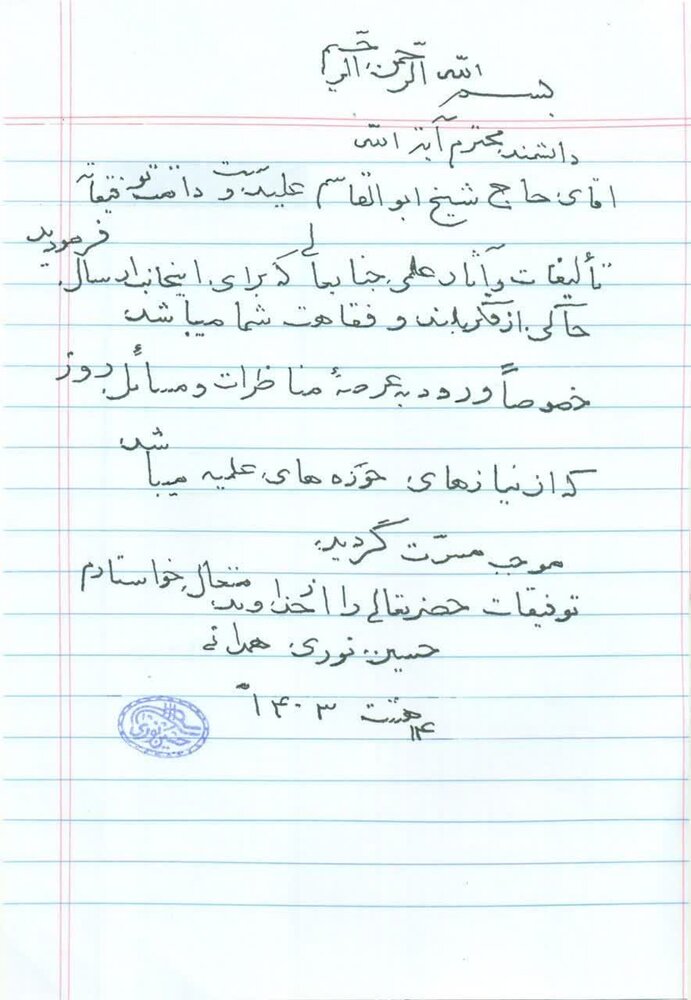 بسم الله الرحمن الرحیم
دانشمند محترم آیة الله
اقای حاج شیخ ابوالقاسم علیدوست دامت توفیقاته
تألیفات وآثار علمی جنابعالی که برای اینجانب ارسال فرمودید
حاکی از فکر بلند و فقاهت شما میباشد
خصوصاً ورود به عرصهٔ مناظرات و مسائل روز
که از نیازهای حوزه های علمیه میباشد
موجب مسرّت گردید
توفیقات حضرتعالی را از خداوند متعال خواستارم
حسین نوری همدانی
۱۴۰۳
حسین نوری